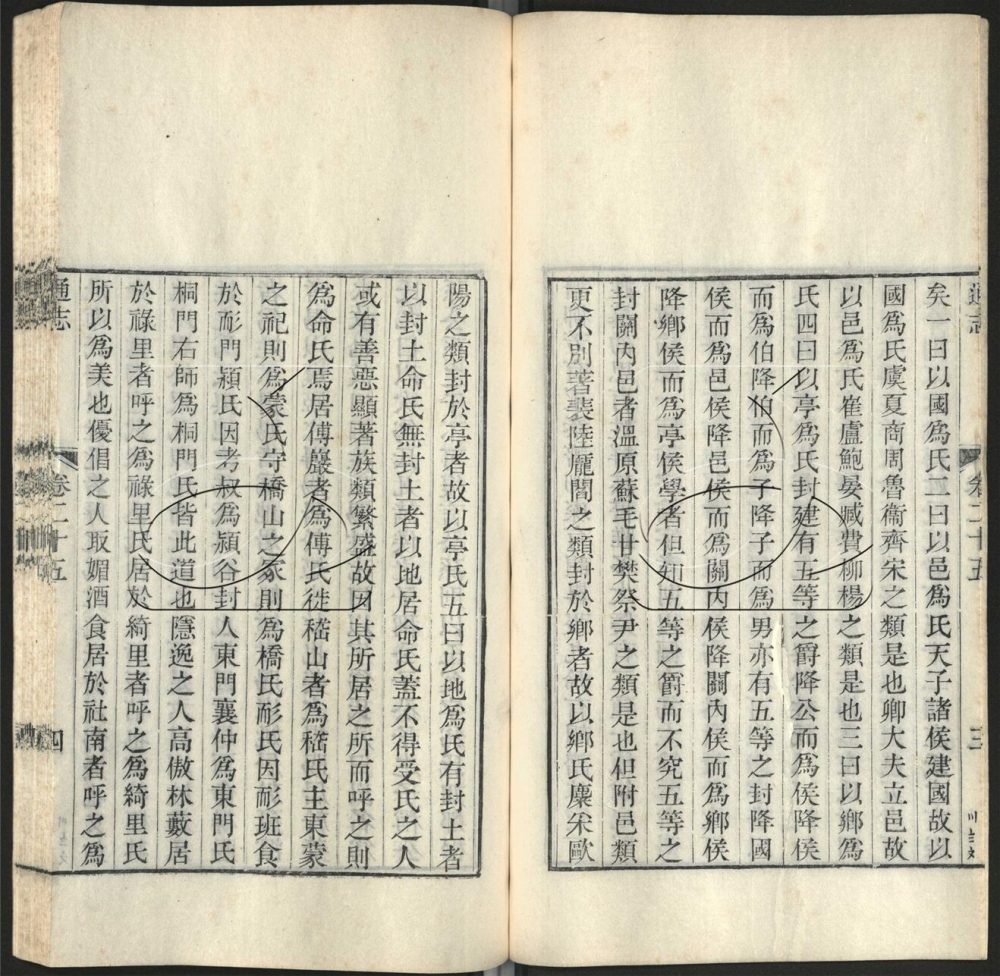 通志
卷二十五
三
矣一曰以國爲氏二曰以邑爲氏天子諸侯建國故以
國爲氏虞夏商周魯衞齊宋之類是也卿大夫立邑故
以邑爲氏崔盧鮑晏臧費柳楊之類是也三曰以鄉爲
氏四曰以亭爲氏封建有五等之爵降公而爲侯降侯
而爲伯降伯而爲子降子而爲男亦有五等之封降國
侯而爲邑侯降邑侯而爲關內侯降關內侯而爲鄉侯
降鄉侯而爲亭侯學者但知五等之爵而不究五等之
封關內邑者溫原蘇毛甘樊祭尹之類是也但附邑類
更不別著裴陸龎閻之類封於鄉者故以鄉氏麋采歐
陽之類封於亭者故以亭氏五曰以地爲氏有封土者
以封土命氏無封土者以地居命氏蓋不得受氏之人
或有善惡顯著族類繁盛故因其所居之所而呼之則
爲命氏焉居傅巖者爲傅氏徙嵇山者爲嵇氏主東蒙
之祀則爲蒙氏守橋山之冢則爲橋氏耏氏因耏班食
於耏門潁氏因考叔爲潁谷封人東門襄仲爲東門氏
桐門右師爲桐門氏皆此道也隱逸之人高傲林藪居
於祿里者呼之爲祿里氏居於綺里者呼之爲綺里氏
所以爲美也優倡之人取媚酒食居於社南者呼之爲
通志
卷二十五
四